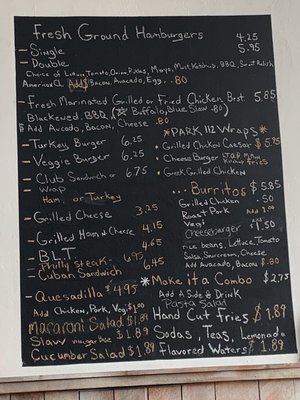 Fresh Ground Hamburgers
- Single 4.25
- Double 5.95
Choice of Lettuce, Tomato, Onion, Pickles, Mayo, Must, Ketchup, BBQ, Sweet Relish
American Add Bacon, Avocado, Egg, .80
- Fresh Marinated Grilled or Fried Chicken Brst. 5.85
Blackened, BBQ, (Buffalo, Blue Slaw .80)
Add Avcado, Bacon, Cheese .80
- Turkey Burger 6.25
- Veggie Burger 6.25
- Club Sandwich or 6.75
- Wrap
Ham, or Turkey
- Grilled Cheese 3.25
- Grilled Ham & Cheese 4.15
- B.L.T 4.65
- Philly Steak 6.95
- Cuban Sandwich 6.45
- Quesadilla $4.95
Add Chicken, Pork, Veg. $1.00
Macaroni Salad $1.89
Slaw vinegar base $1.89
Cucumber Salad $1.89
*PARK 112 Wraps*
• Grilled Chicken Caesar $5.75
• Cheese Burger Wrap
• Greek Grilled Chicken
... Burritos $5.85
Grilled Chicken .50
Roast Pork Add 1.00
Veg
Cheeseburger Add $1.50
rice, beans, Lettuce, Tomato
Salsa, Sourcream, Cheese
Add Avocado, Bacon $.80
*Make it a Combo $2.75
Add A Side & Drink
Pasta Salad
Hand Cut Fries $1.89
Sodas, Teas, Lemonade
Flavored Waters $1.89